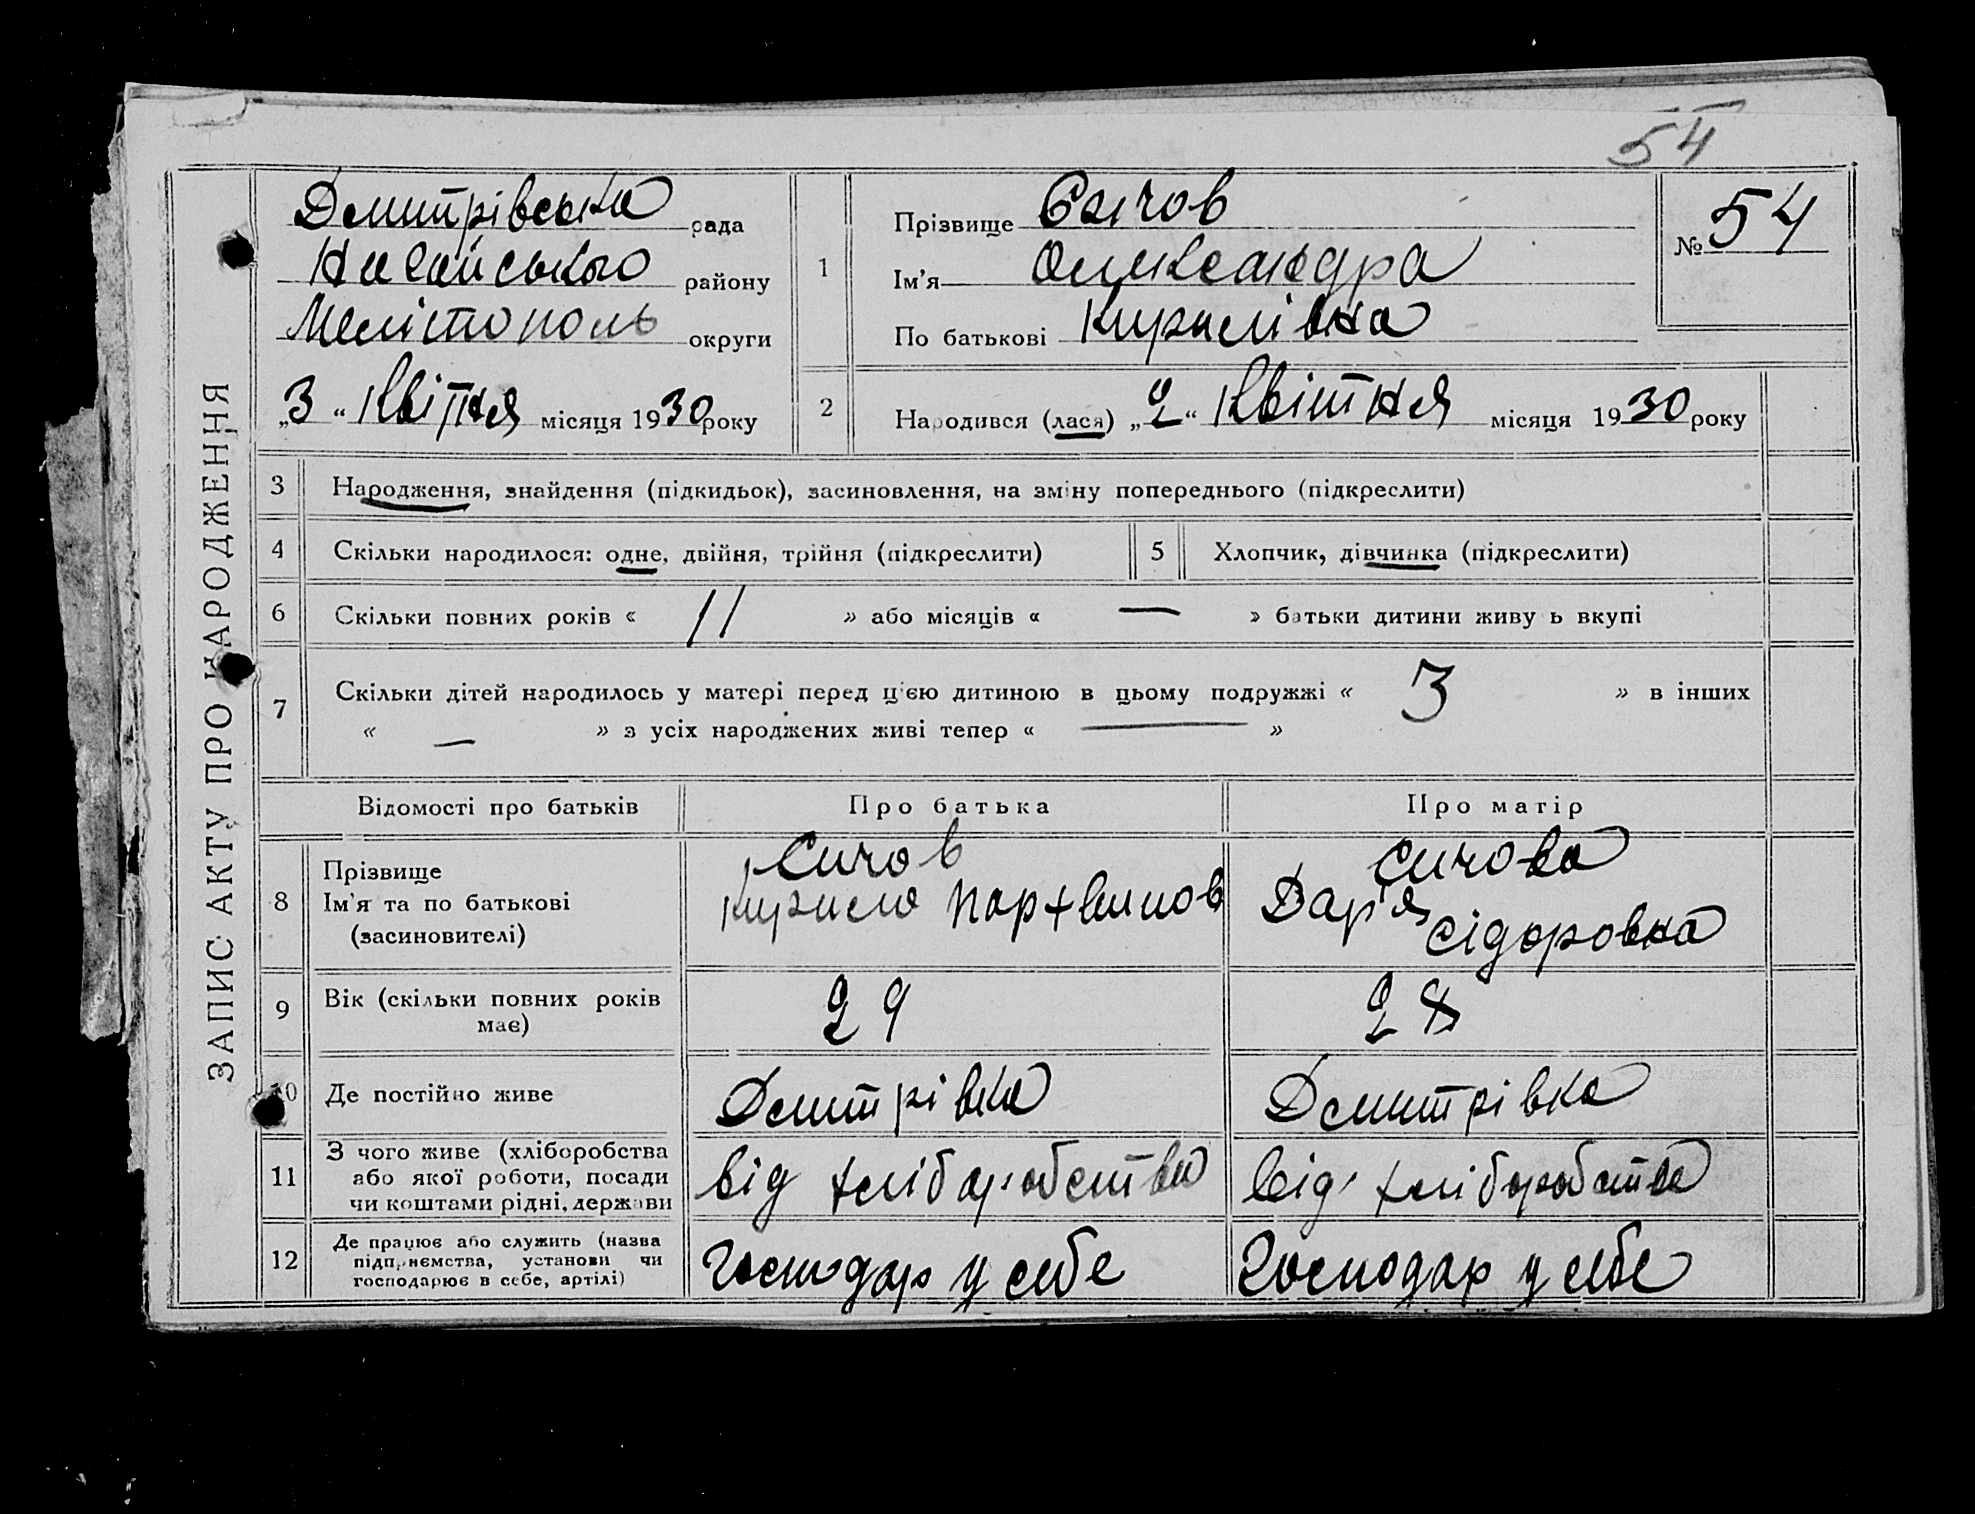 54
ЗАПИС АКТУ ПРО НАРОДЖЕННЯ
Дмитрівська рада
Нагайського району
Мелітополь округи
„3“ Квітня місяця 1930 року
1
Прізвище Сичов
Ім'я Олександра
По батькові Кирилівна
№ 54
2
Народився (лася) „2“ Квітня місяця 1930 року
3 Народження, знайдення (підкидьок), засиновлення, на зміну попереднього (підкреслити)
4 Скільки народилося: одне, двійня, трійня (підкреслити)
5 Хлопчик, дівчинка (підкреслити)
6 Скільки повних років « 11 » або місяців « — » батьки дитини живу ь вкупі
7 Скільки дітей народилось у матері перед цією дитиною в цьому подружжі « 3 » в інших
« — » з усіх народжених живі тепер « — »
Відомості про батьків Про батька Про матір
8 Прізвище
Ім'я та по батькові
(засиновителі)
Сичов
Кирило Пархвилов
Сичова
Дар'я
Сідоровна
9 Вік (скільки повних років
має)
29
28
10 Де постійно живе
Дмитрівка
Дмитрівка
11 З чого живе (хліборобства
або якої роботи, посади
чи коштами рідні, держави
від хліборобства
від хліборобства
12 Де працює або служить (назва
підприємства, установи чи
господарює в себе, артілі)
Господар у себе
Господар у себе